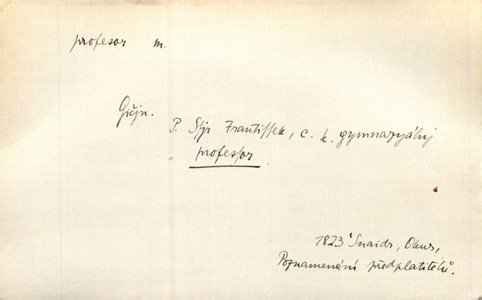 profesor m.
Gičjn.
P. Sýr Frantissek, c. k. gymnazyálnj
professor
1823 Šnaidr, Okus,
Poznamenání předplatitelů.